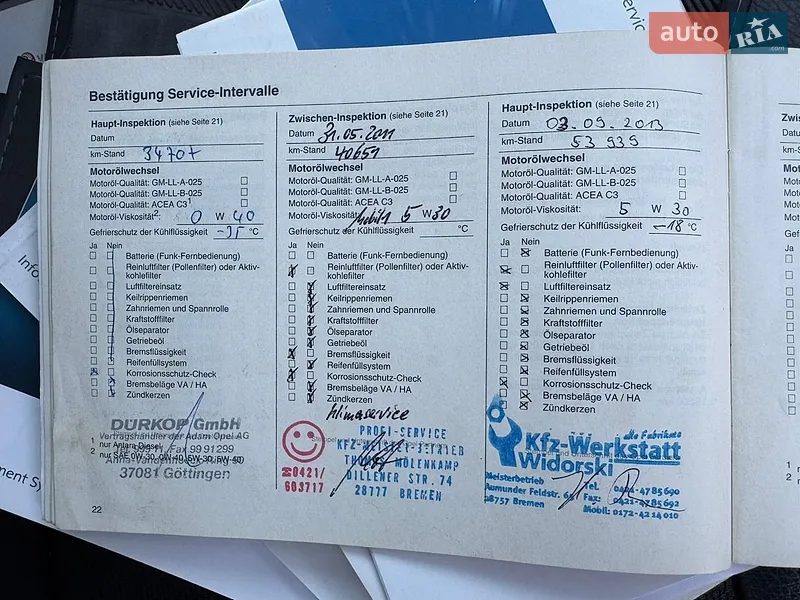 auto RIA.com
Bestätigung Service-Intervalle
Haupt-Inspektion (siehe Seite 21)
Datum
km-Stand 34707
Motorölwechsel
Motoröl-Qualität: GM-LL-A-025
Motoröl-Qualität: GM-LL-B-025
Motoröl-Qualität: ACEA C3¹
Motoröl-Viskosität²: 0 W 40
Gefrierschutz der Kühlflüssigkeit -35 °C
Ja Nein
Batterie (Funk-Fernbedienung)
Reinluftfilter (Pollenfilter) oder Aktiv-
kohlefilter
Luftfiltereinsatz
Keilrippenriemen
Zahnriemen und Spannrolle
Kraftstofffilter
Ölseparator
Getriebeöl
Bremsflüssigkeit
Reifenfüllsystem
Korrosionsschutz-Check
Bremsbeläge VA / HA
Zündkerzen
DURKOP GmbH
Vertragshändler der Adam Opel AG
1 nur Antara Diesel
Fax 9991299
2 nur SAE 0W-30, 0W-40, 5W-30
37081 Göttingen
22
Zwischen-Inspektion (siehe Seite 21)
Datum 31.05.2011
km-Stand 40651
Motorölwechsel
Motoröl-Qualität: GM-LL-A-025
Motoröl-Qualität: GM-LL-B-025
Motoröl-Qualität: ACEA C3
Motoröl-Viskosität 5 W 30
Gefrierschutz der Kühlflüssigkeit °C
Ja Nein
Batterie (Funk-Fernbedienung)
Reinluftfilter (Pollenfilter) oder Aktiv-
kohlefilter
Luftfiltereinsatz
Keilrippenriemen
Zahnriemen und Spannrolle
Kraftstofffilter
Ölseparator
Getriebeöl
Bremsflüssigkeit
Reifenfüllsystem
Korrosionsschutz-Check
Bremsbeläge VA / HA
Zündkerzen
Klimaservice
PROFI-SERVICE
KFZ-MEISTER-BETRIEB
THOMAS MÖLENKAMP
DILLENER STR. 74
28777 BREMEN
☎0421/
603717
Haupt-Inspektion (siehe Seite 21)
Datum 03.09.2013
km-Stand 53 939
Motorölwechsel
Motoröl-Qualität: GM-LL-A-025
Motoröl-Qualität: GM-LL-B-025
Motoröl-Qualität: ACEA C3
Motoröl-Viskosität: 5 W 30
Gefrierschutz der Kühlflüssigkeit -18 °C
Ja Nein
Batterie (Funk-Fernbedienung)
Reinluftfilter (Pollenfilter) oder Aktiv-
kohlefilter
Luftfiltereinsatz
Keilrippenriemen
Zahnriemen und Spannrolle
Kraftstofffilter
Ölseparator
Getriebeöl
Bremsflüssigkeit
Reifenfüllsystem
Korrosionsschutz-Check
Bremsbeläge VA / HA
Zündkerzen
alle Fabrikate
Kfz-Werkstatt
Widorski
Meisterbetrieb
Aumunder Feldstr.
28757 Bremen
Tel. 0421-4785690
Fax: 0421-4785692
Mobil: 0172-4214010